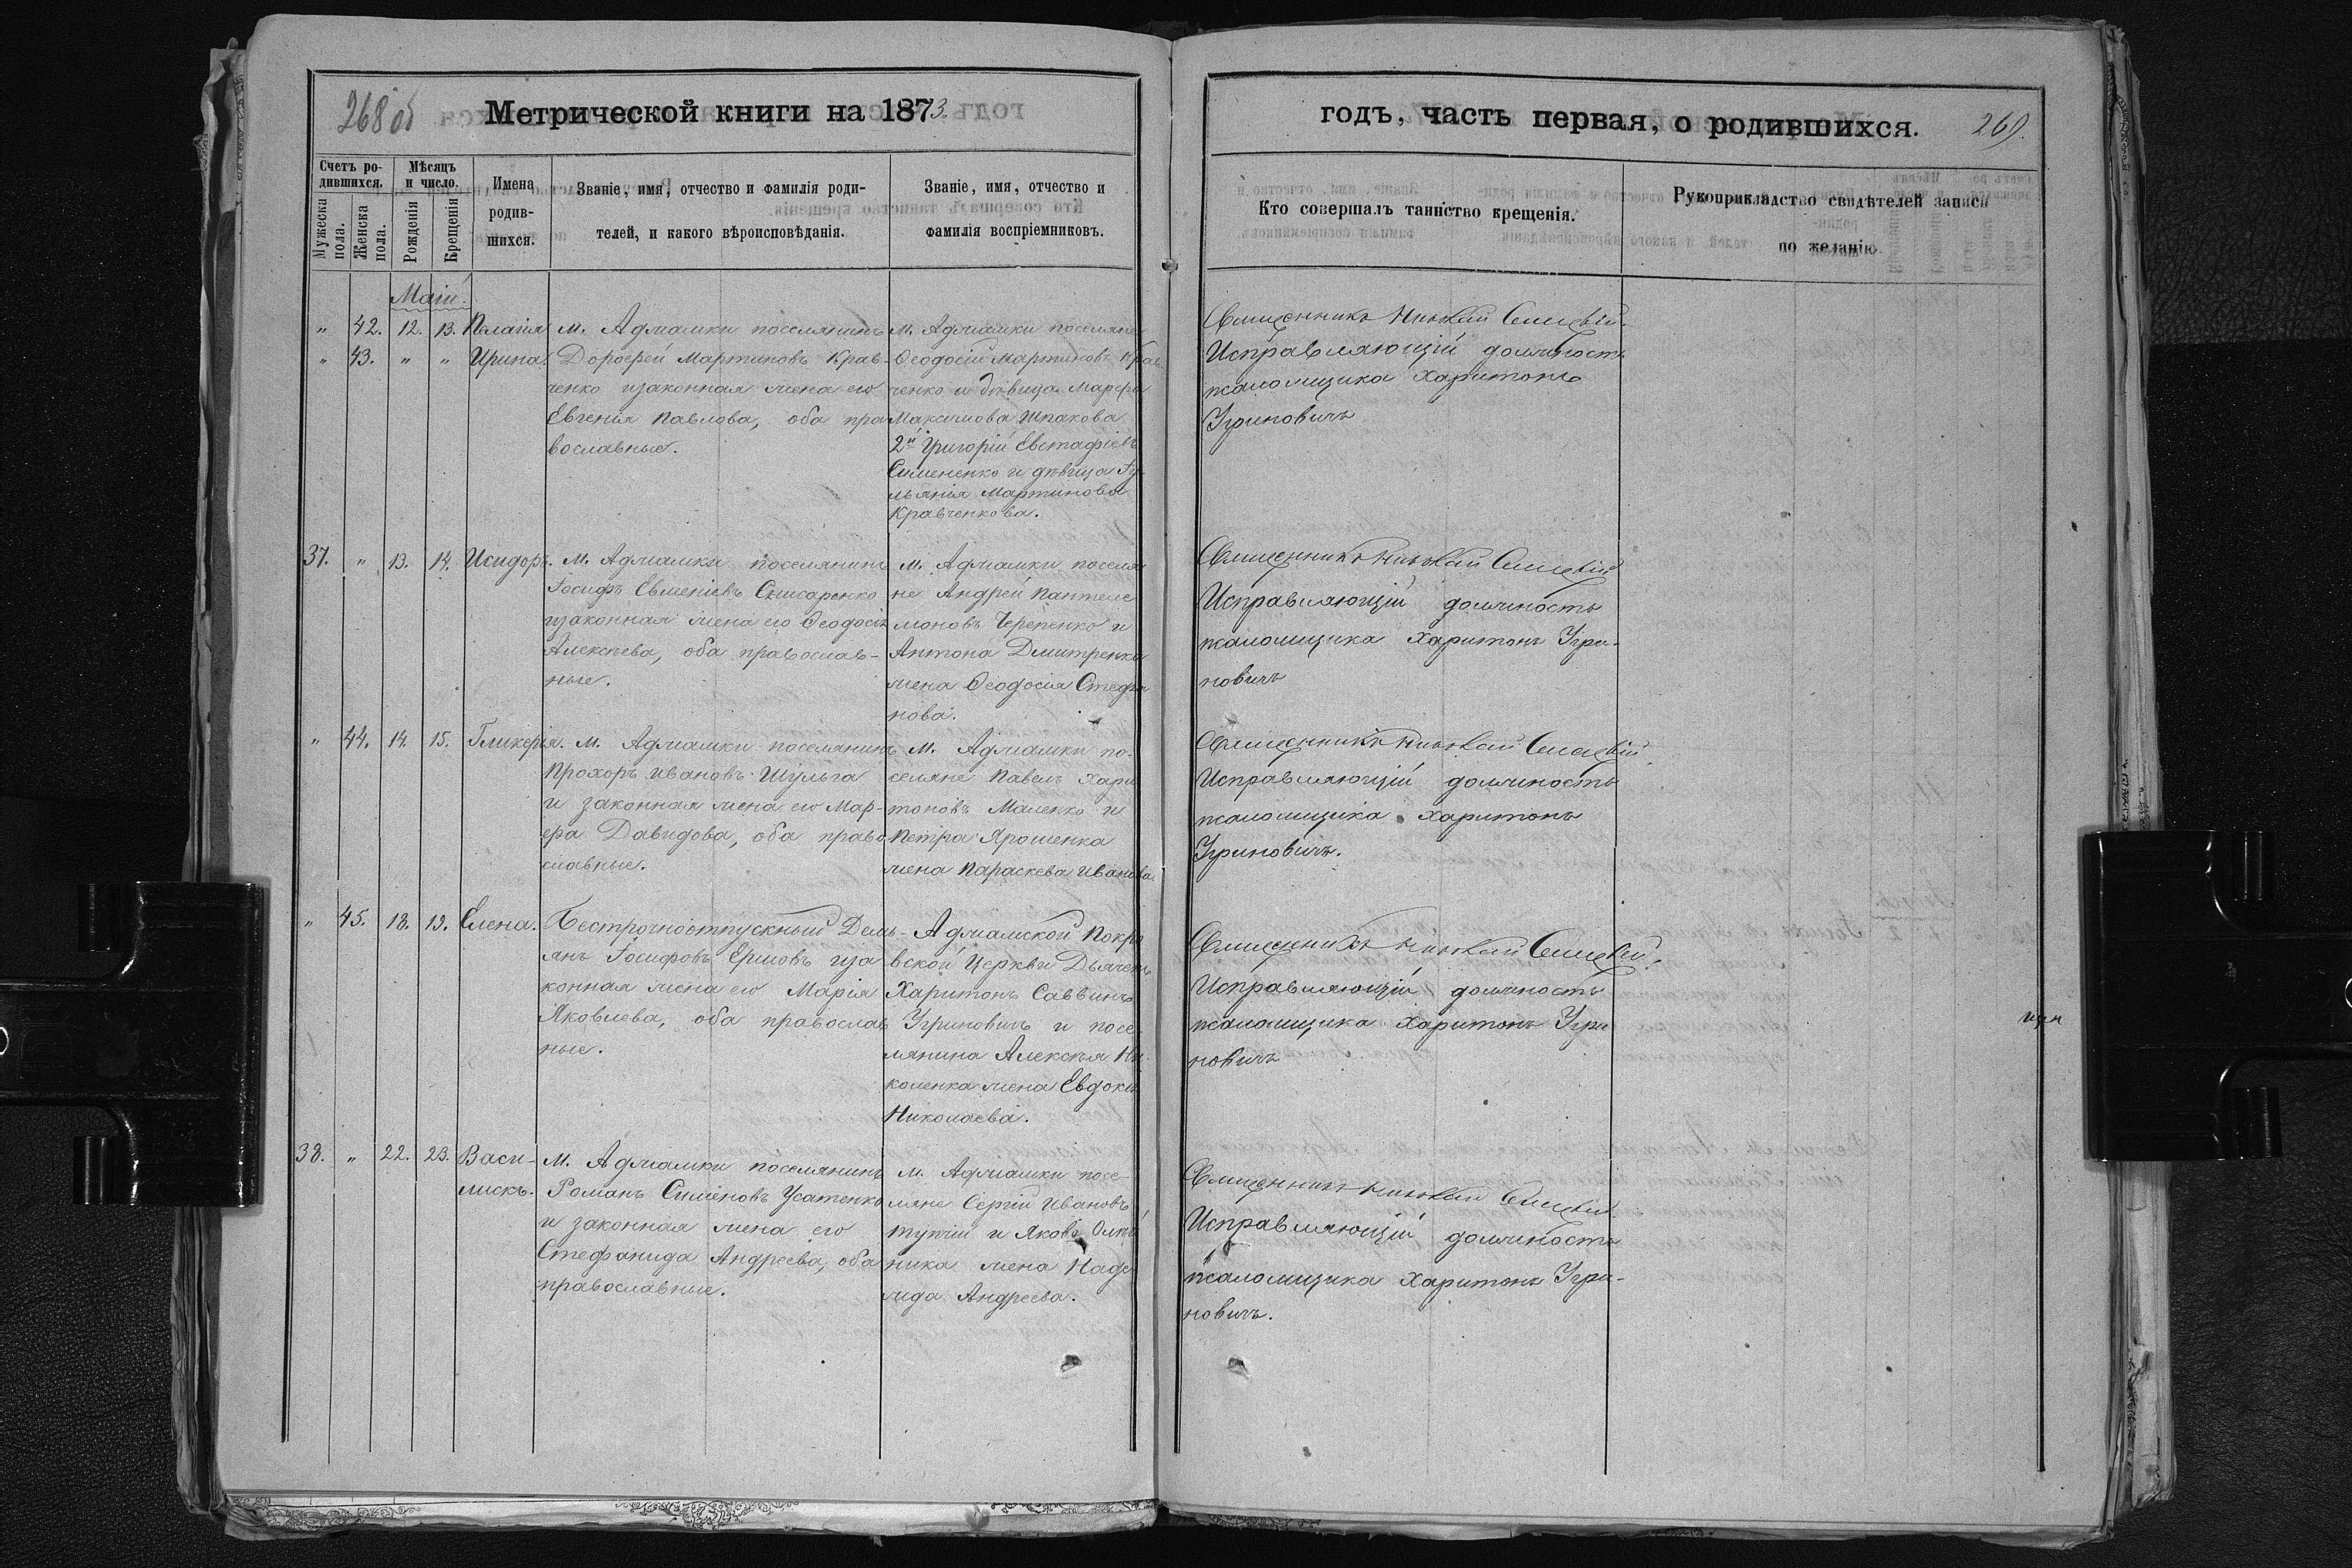 268 об
Метрической книги на 1873.
годъ, часть первая, о родившихся.
269.
Счетъ родившихся.
Мужеска пола.
Женска пола.
Мѣсяцъ и число.
Рожденія
Крещенія
Имена родив-
шихся.
Званіе, имя, отчество и фамилія роди-
телей, и какого вѣроисповѣданія.
Званіе, имя, отчество и
фамилія воспріемниковъ.
Кто совершалъ таинство крещенія.
Рукоприкладство свидѣтелей записи
по желанію.
Маій.
" 42. 12. 13. Пелагія
" 43. " " Ирина.
м. Аджамки поселянинъ
Дорофей Мартиновъ Крав-
ченко изаконная жена его
Евгенія Павлова, оба пра
вославные.
м. Аджамки поселяне
Ѳеодосій Мартиновъ Крав
ченко и дѣвица Марфа
Максимова Шпакова
2й Григорій Евстафіевъ
Симененко и дѣвица Іу-
льянія Мартинова
Кравченкова.
Священникъ
Исправляющій должность
псаломщика Харитонъ
Угриновичъ
37. " 13. 14. Исидоръ.
м. Аджамки поселянинъ
Іосифъ Евменіевъ Снисаренко
изаконная жена его Ѳеодосія
Алексѣева, оба православ-
ные.
м. Аджамки поселя
не Андрей Пантеле
моновъ Черепенко и
Антона Дмитренка
жена Ѳеодосія Стефа
нова.
Священникъ
Исправляющій должность
псаломщика Харитонъ Угри-
новичъ
" 44. 14. 15. Гликерія.
м. Аджамки поселянинъ
Прохоръ Ивановъ Шульга
и законная жена его Мар-
фа Давидова, оба право
славные.
м. Аджамки по-
селяне Павелъ Хари
тоновъ Маленко и
Петра Ярошенка
жена Параскева Иванова.
Священникъ
Исправляющій должность
псаломщика Харитонъ
Угриновичъ.
" 45. 18. 19. Елена.
Безсрочноотпускный Демь-
янъ Іосифовъ Ершовъ иза
конная жена его Марія
Яковлева, оба православ
ные.
Аджамской Покро
вской Церкви Дьяченъ
Харитонъ Саввинъ
Угриновичъ и посе
лянина Алексѣя Ни
коленка жена Евдокія
Николаева.
Священникъ
Исправляющій должность
псаломщика Харитонъ Угри
новичъ
38. " 22. 23. Васи-
лискъ.
м. Аджамки поселянинъ
Романъ Сименовъ Усатенко
и законная жена его
Стефанида Андреева, оба
православные.
м. Аджамки посе-
ляне Сергій Ивановъ
и Якова
ника жена Наде
жда Андреева.
Священникъ
Исправляющій должность
псаломщика Харитонъ Угри-
новичъ.